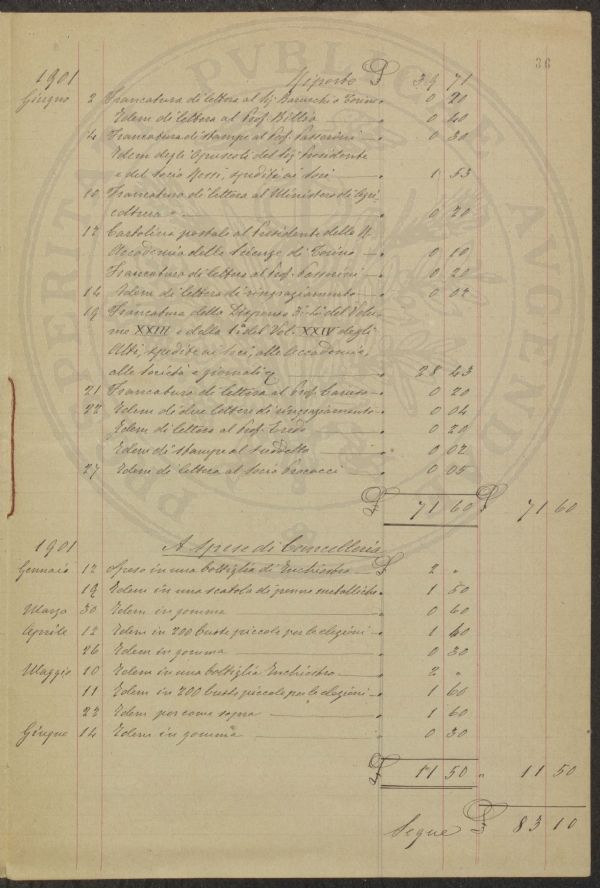 36
1901 Riporto £ 39 71
Giugno 2 Francatura di lettera al Sig. e Torino 0 20
Idem di lettera al Prof. Billia 0 40
4 Francatura di stampe al Prof. Passerini 0 30
Idem degli Opuscoli del Sig. Presidente
e del Socio spediti ai Soci 1 53
10 Francatura di lettera al Ministero di Agri
coltura " 0 20
12 Cartolina postale al Presidente della R.
Accademia delle Scienze di Torino 0 10
Francatura di lettera al Prof. Passerini 0 20
14 Idem di lettera di ringraziamento 0 02
19 Francatura della Dispensa 3ª-4ª del Volu-
me XXIII e della 1ª del Vol. XXIV degli
Atti, spedite ai Soci, alle Accademie,
alle società e giornali 28 43
21 Francatura di lettera al Prof. Caruso 0 20
22 Idem di due lettere di ringraziamento 0 04
Idem di lettera al Prof. 0 20
Idem di stampe al suddetto 0 02
27 Idem di lettera al Socio 0 05
£ 71 60 £ 71 60
1901 A Spese di Cancelleria
Gennaio 12 Speso in una bottiglia di Inchiostro £ 2 "
19 Idem in una scatola di penne metalliche 1 50
Marzo 30 Idem in gomma 0 60
Aprile 12 Idem in 200 buste piccole per le elezioni 1 60
26 Idem in gomma 0 30
Maggio 10 Idem in una bottiglia Inchiostro 2 "
11 Idem in 200 buste piccole per le elezioni 1 60
22 Idem per come sopra 1 60
Giugno 14 Idem in gomma 0 30
£ 11 50 " 11 50
Segue £ 83 10